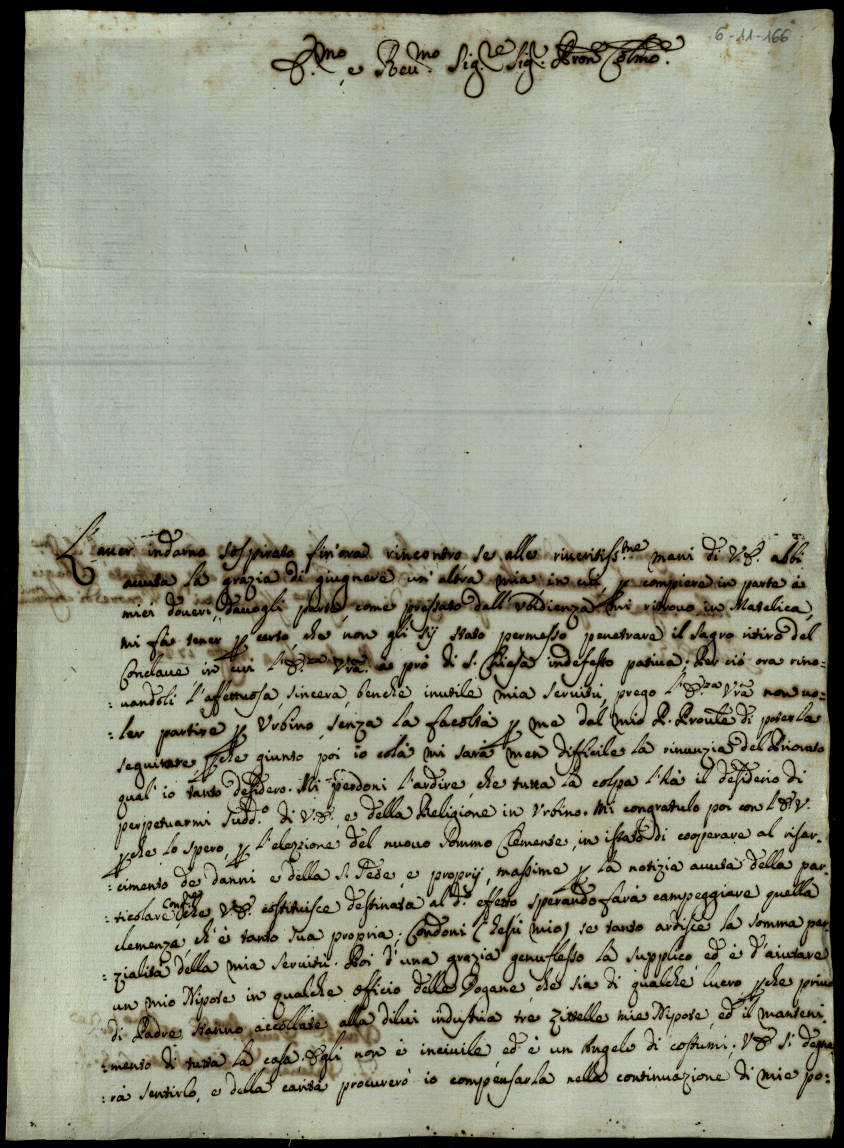 6-11-166
E.mo e Reu.mo Sig.re Sig.r Pron Colmo.
L'auer indarno sospirato fin'ora rincontro se alle riueritiss.me mani di V.E. abbi
auuta la grazia di giugnere un'altra mia in cui p compiere in parte a
miei doueri, dauogli parte, come prostrato dall'Vbidienza mi ritrouo in Matelica,
mi fà tener p certo che non gli sij stato permesso penetrare il sagro ritiro del
Conclaue in cui l'E.za Vra a prò di S. Chiesa indefesso patiua; Per ciò ora rino=
=uandoli l'affettuosa, sincera, benche inutile mia seruitù, prego l'E.za Vra non uo=
=ler partire p Vrbino, senza la facoltà p me dal mio P. Proule di poterla
seguitare, pche giunto poi io colà mi sarà men difficile la rinunzia del Priorato
qual'io tanto desidero. Mi perdoni l'ardire, che tutta la colpa l'hà il desiderio di
perpetuarmi Sudd.o di V.E. e della Religione in Vrbino. Mi congratulo poi con l'E.V.
pche lo spero, p l'elezzione del nuouo Sommo Clemente, in istato di cooperare al risar=
=cimento de danni e della S. Sede, e proprij, massime p la notizia auuta della par=
=ticolare Cong.ne che V.E. costituisce destinata al d.o effetto sperando farà campeggiare quella
clemenza ch'è tanto sua propria; Condoni (Giesù mio) se tanto ardisce la somma par=
=zialità della mia seruitù. Poi d'una grazia genuflesso la supplico, ed è d'aiutare
un mio Nipote in qualche officio della Dogane, che sia di qualche lucro, pche priuo
di Padre stanno accollate alla dilui industria tre zittelle mie Nepote, ed il manteni=
=mento di tutta la casa, Egli non è inciuile ed è un Angelo di costumi; V.E. si degne=
=rà sentirlo, e della carità procurerò io compensarla nella continuazione di mie po=